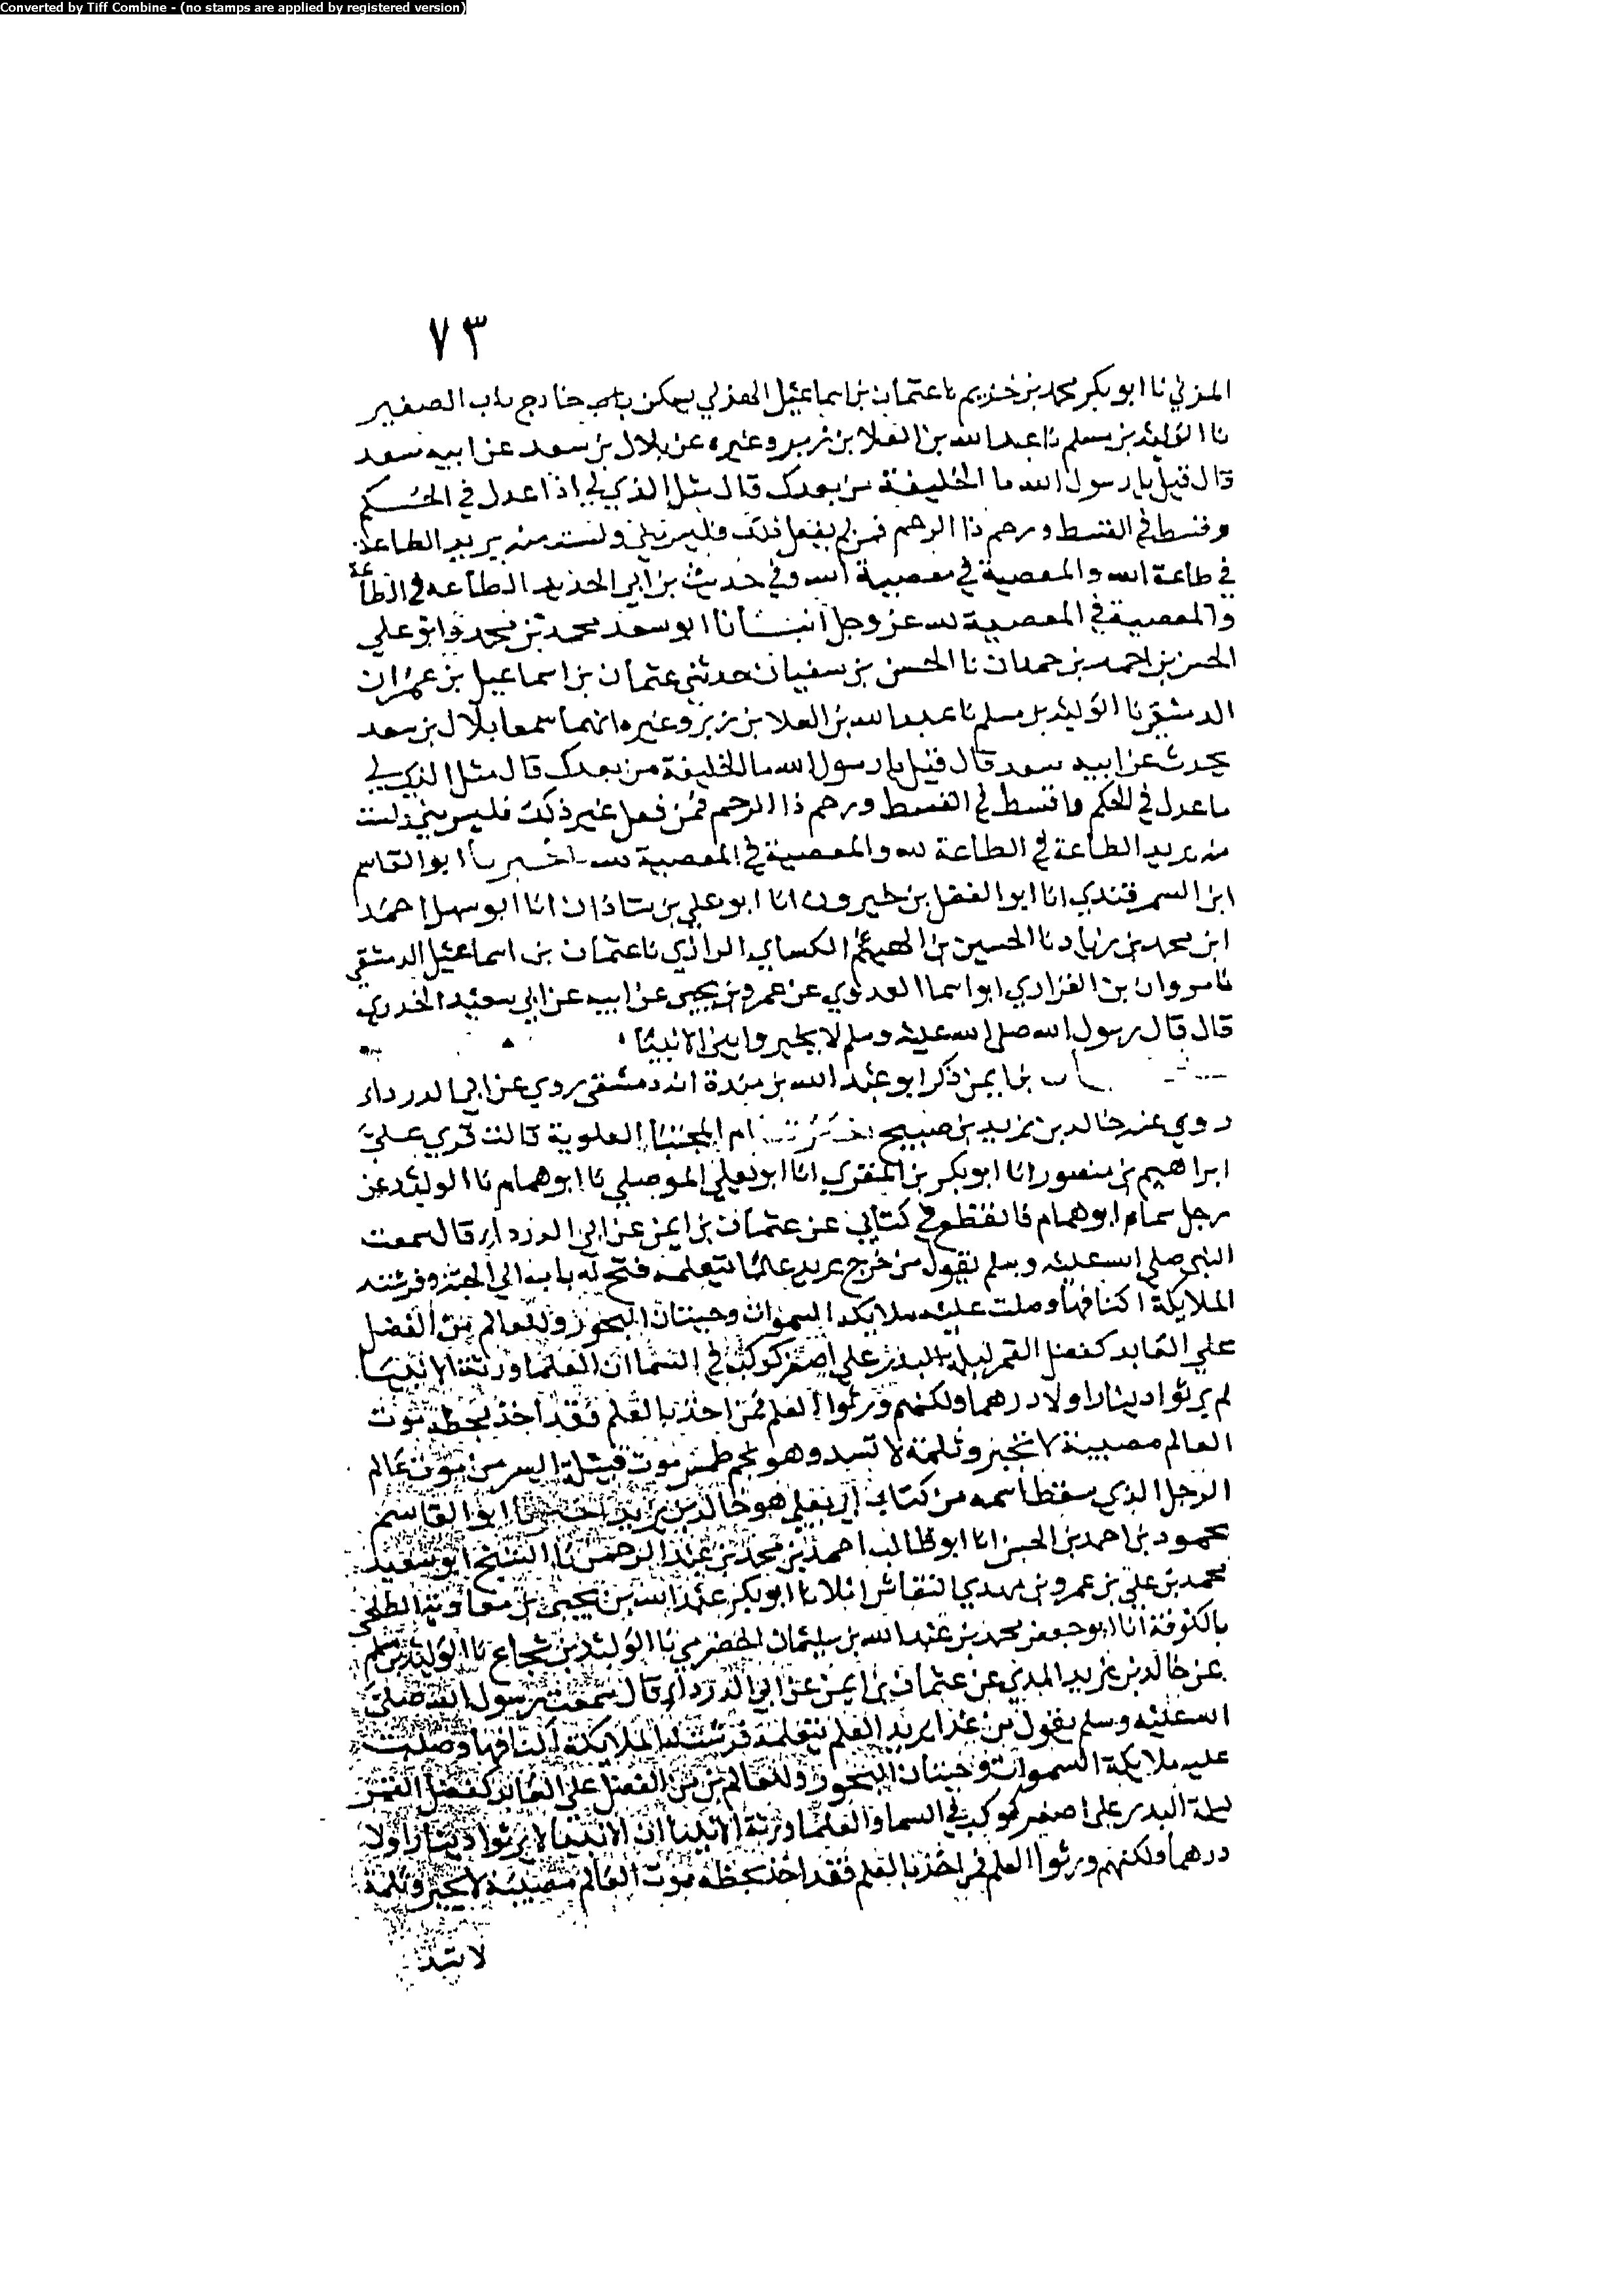 Converted by Tiff Combine - (no stamps are applied by registered version)
٧٣
المزني نا ابو بكر محمد بن خزيم نا عثمان بن اسماعيل الهذلي يسكن خارج باب الصغير
نا الوليد بن مسلم نا عبد الله بن العلا بن زبر وغيره عن بلال بن سعد عن ابيه سعد
قال قيل يا رسول الله ما الخليفة من بعدك قال مثل الذي لي اذا عدل في الحكم
وقسط في القسط ورحم ذا الرحم فمن لم يفعل ذلك فليس مني ولست منه يريد الطاعة
في طاعة الله والمعصية في معصية الله وفي حديث بن ابي الحديد الطاعه في الطاعة
والمعصية في المعصية لله عز وجل انبانا ابو سعد محمد بن محمد وابو علي
الحسن بن احمد بن حمدان نا الحسن بن سفيان حدثني عثمان بن اسماعيل بن عمران
الدمشقي نا الوليد بن مسلم نا عبد الله بن العلا بن زبر وغيره انهما سمعا بلال بن سعد
يحدث عن ابيه سعد قال قيل يا رسول الله ما الخليفة من بعدك قال مثل الذي لي
ما عدل في الحكم واقسط في القسط ورحم ذا الرحم فمن فعل غير ذلك فليس مني ولست
منه يريد الطاعة في الطاعة لله والمعصية في المعصية لله اخبرنا ابو القاسم
ابن السمرقندي انا ابو الفضل بن خيرون انا ابو علي بن شاذان انا ابو سهل احمد
ابن محمد بن زياد نا الحسين بن الهيثم الكساي الرازي نا عثمان بن اسماعيل الدمشقي
نا مروان بن الفزاري ابو اسما العدوي عن عمرو بن يحيى عن ابيه عن ابي سعيد الخدري
قال قال رسول الله صلى الله عليه وسلم لا تخيروا بين الانبيا
بن ايمن ذكر ابو عبد الله بن مندة انه دمشقي روي عن ابي الدرداء
روي عنه خالد بن يزيد بن صبيح ام المجتبا العلوية قالت قري علي
ابراهيم بن منصور انا ابو بكر بن المقري انا ابو يعلي الموصلي نا ابو همام نا الوليد عن
رجل سماه ابو همام فانقطع في كتابي عن عثمان بن ايمن عن ابي الدرداء قال سمعت
النبي صلى الله عليه وسلم يقول من خرج يريد علما يتعلمه فتح له باب الي الجنة وفرشته
الملايكة اكنافها وصلت عليه ملايكة السموات وحيتان البحور وللعالم من الفضل
علي العابد كفضل القمر ليلة البدر علي اصغر كوكب في السما ان العلما ورثة الانبيا
لم يرثوا دينارا ولا درهما ولكنهم ورثوا العلم فمن اخذ بالعلم فقد اخذ بحظه موت
العالم مصيبة لا تجبر وثلمة لا تسد وهو نجم طمس موت قبيلة ايسر من موت عالم
الرجل الذي سقط اسمه من كتاب ابي يعلي هو خالد بن يزيد اخبرنا ابو القاسم
محمود بن احمد بن الحسن انا ابو طالب احمد بن محمد بن عبد الرحمن نا الشيخ ابو سعيد
محمد بن علي بن عمرو بن مهدي النقاش املا نا ابو بكر عبد الله بن يحيى بن معاوية الطلحي
بالكوفة انا ابو جعفر محمد بن عبد الله بن سليمان الحضرمي نا الوليد بن شجاع نا الوليد بن مسلم
عن خالد بن يزيد المدني عن عثمان بن ايمن عن ابي الدرداء قال سمعت رسول الله صلى
الله عليه وسلم يقول من غدا يريد العلم يتعلمه فرشت له الملايكة اكنافها وصلت
عليه ملايكة السموات وحيتان البحور وللعالم من الفضل علي العابد كفضل القمر
ليلة البدر على اصغر كوكب في السما والعلما ورثة الانبيا ان الانبيا لم يرثوا دينارا ولا
درهما ولكنهم ورثوا العلم فمن اخذ بالعلم فقد اخذ بحظه موت العالم مصيبة لا تجبر وثلمة
لا تسد